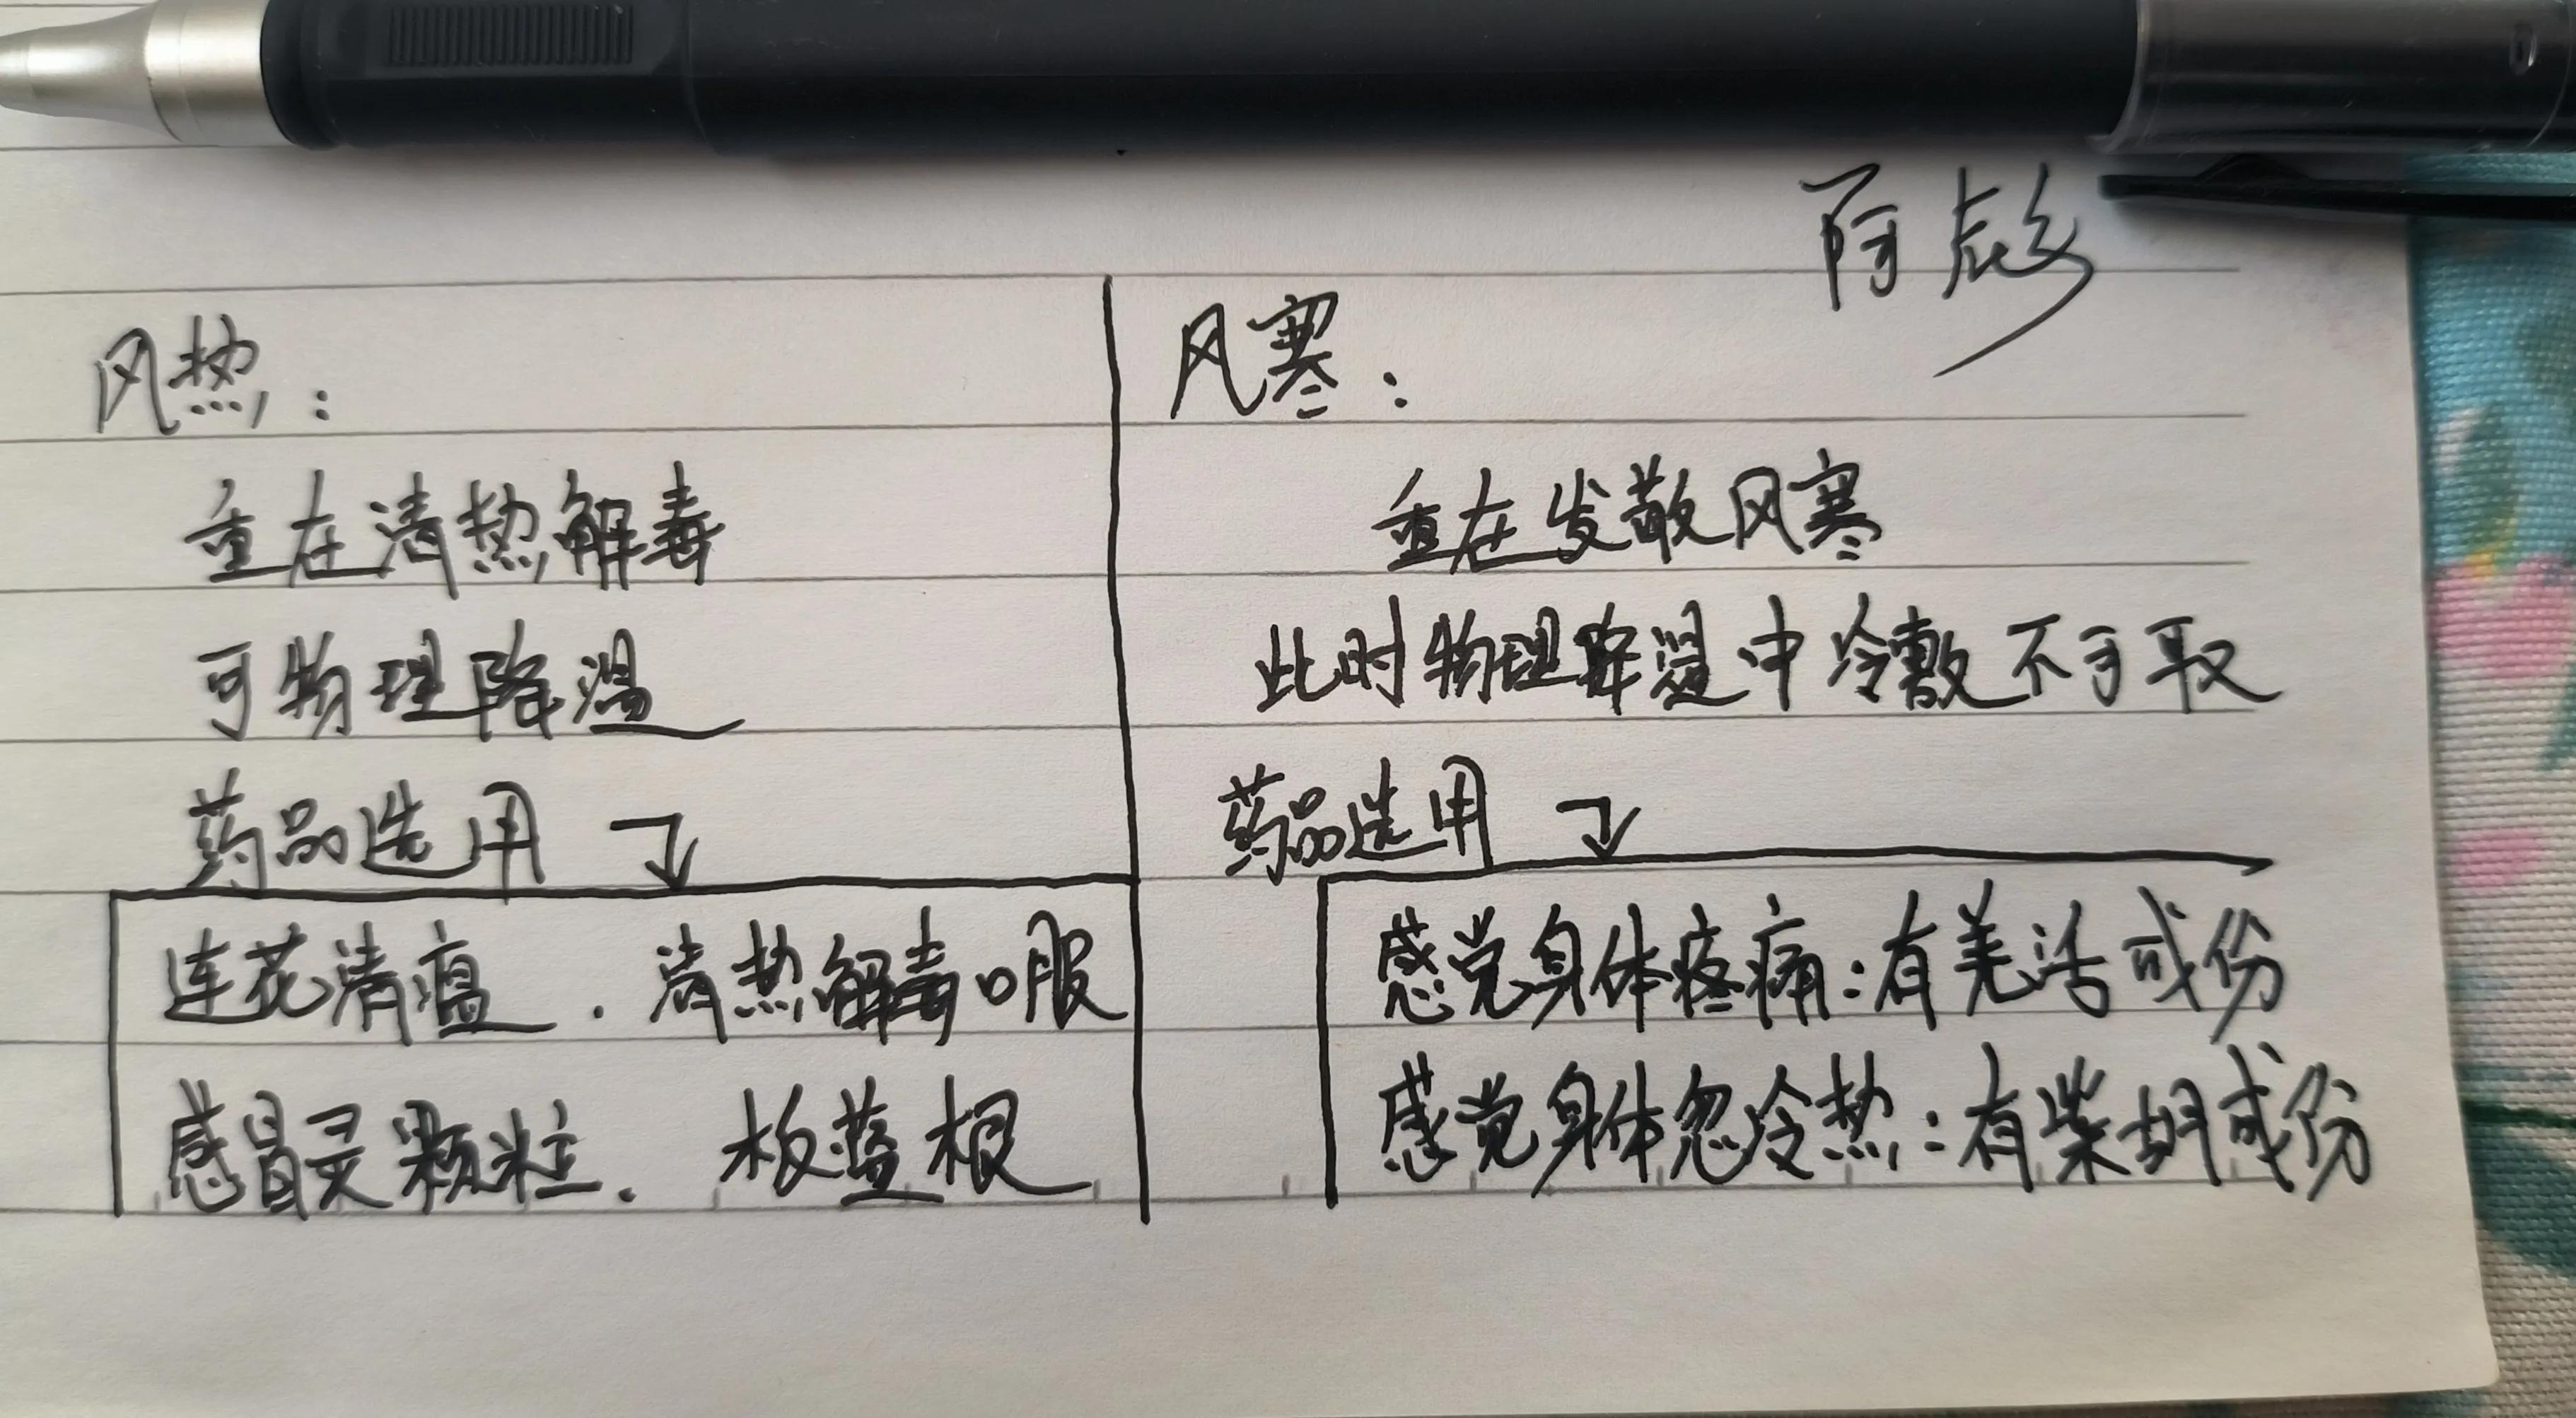 阿彪
风热：
重在清热解毒
可物理降温
药品选用
连花清瘟．清热解毒口服
感冒灵颗粒．板蓝根
风寒：
重在发散风寒
此时物理降温中冷敷不可取
药品选用
感觉身体疼痛：有羌活成份
感觉身体忽冷热：有柴胡成份